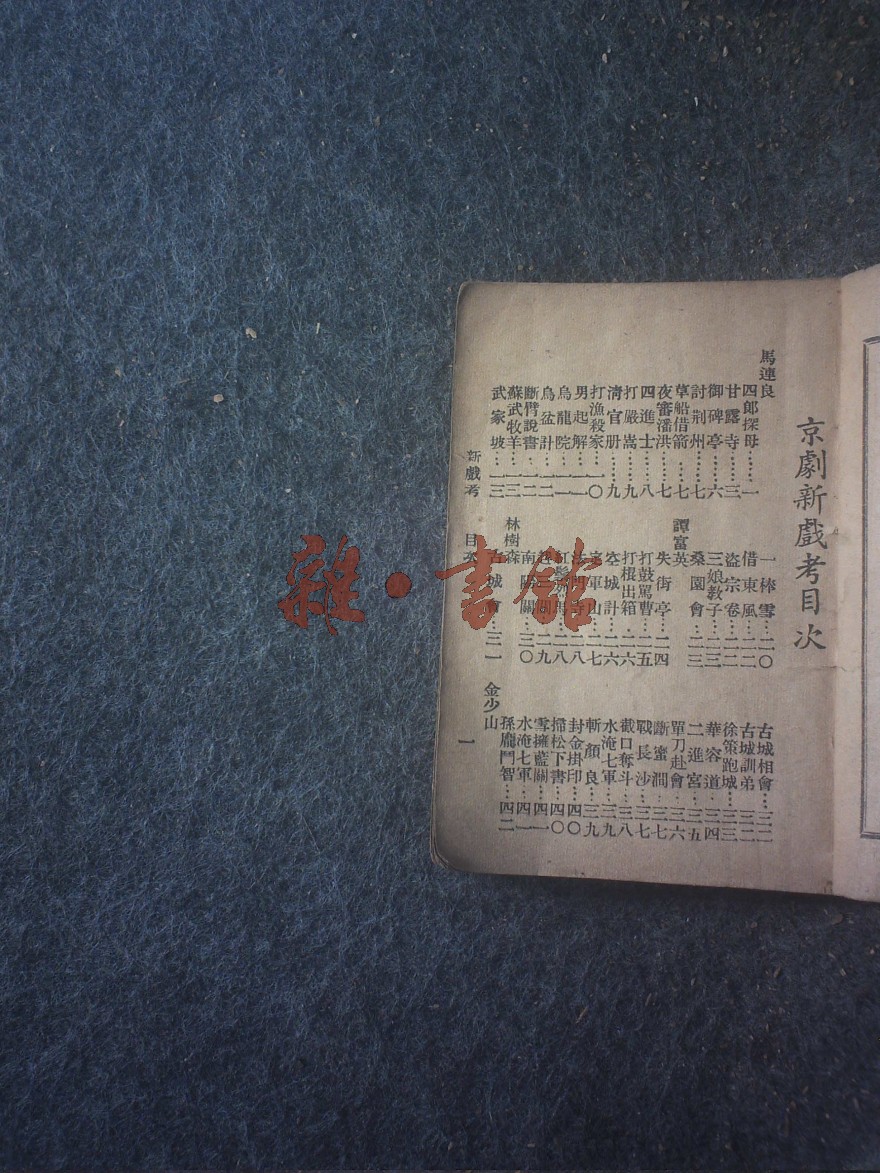 京劇新戲考目次
馬連良
四郎探母⋯一
甘露寺⋯三
御碑亭⋯六
討荆州⋯七
草船借箭⋯七
夜審潘洪⋯七
四進士⋯八
打嚴嵩⋯九
清官册⋯九
打漁殺家⋯一〇
男起解⋯一一
烏龍院⋯一一
烏盆計⋯一二
斷臂說書⋯一二
蘇武牧羊⋯一三
武家坡⋯一三
一棒雪⋯二〇
借東風⋯二二
盗宗卷⋯二二
三娘教子⋯二三
桑園會⋯二三
譚富英
失街亭⋯二四
打鼓罵曹⋯二五
打棍出箱⋯二六
空城計⋯二六
定軍山⋯二七
法門寺⋯二八
紅鬃烈馬⋯二八
⋯二九
南陽關⋯三〇
林樹森
古城會⋯三一
古城相會⋯三二
古城訓弟⋯三二
徐策跑城⋯三三
華容道⋯三四
二進宮⋯三五
單刀赴會⋯三六
斷蜜澗⋯三七
戰長沙⋯三七
截口奪斗⋯三八
水淹七軍⋯三九
斬顏良⋯三九
封金掛印⋯四〇
掃松下書⋯四〇
雪擁藍關⋯四一
水淹七軍⋯四一
金少山
孫龐鬥智⋯四二
新戲考 目次 一
雜·書館